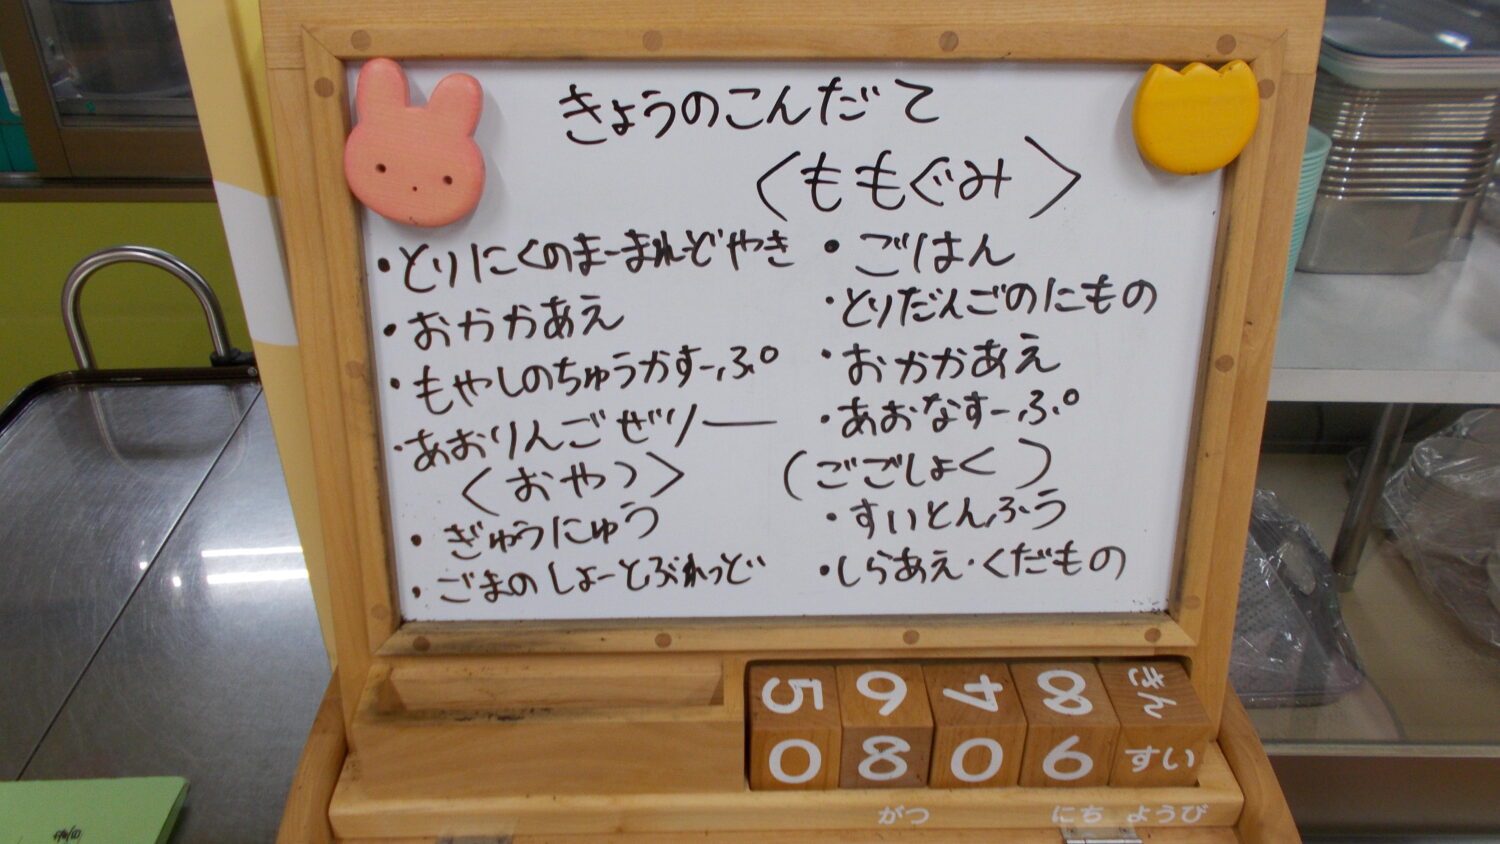 きょうのこんだて
〈ももぐみ〉
・とりにくのまーまれーどやき
・おかかあえ
・もやしのちゅうかすーぷ
・あおりんごぜりー
〈おやつ〉
・ぎゅうにゅう
・ごまのしょーとぶれっど
・ごはん
・とりだんごのにもの
・おかかあえ
・あおなすーぷ
(ごごしょく)
・すいとんふう
・しらあえ・くだもの
5 6 4 8 きん
0 8 0 6 すい
がつ にち ようび